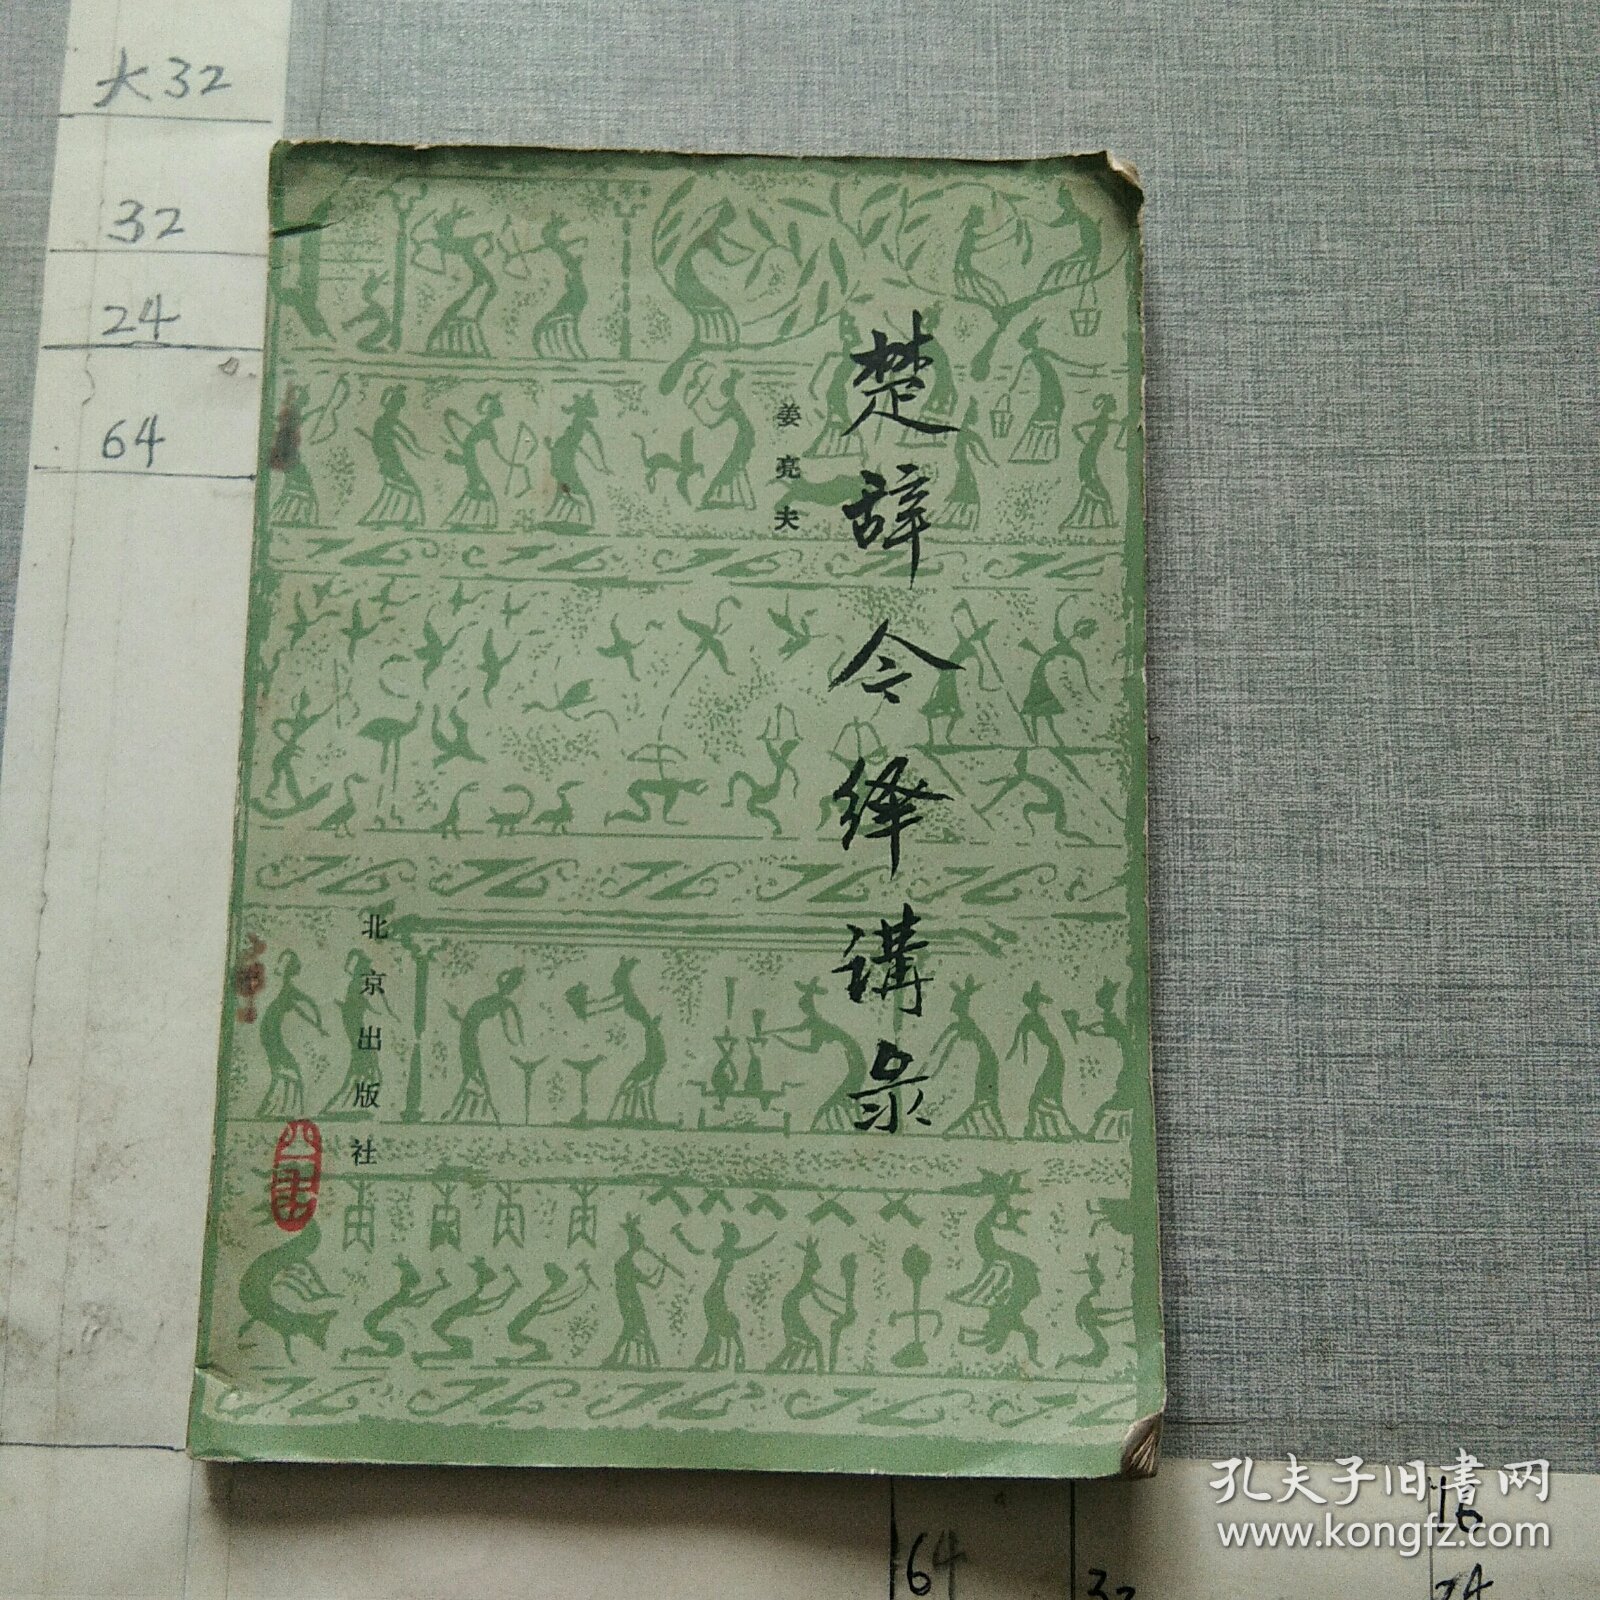 大32
32
24
64
楚辞今绎讲录
姜亮夫
北京出版社
孔夫子旧书网
www.kongfz.com
16
64
32
24